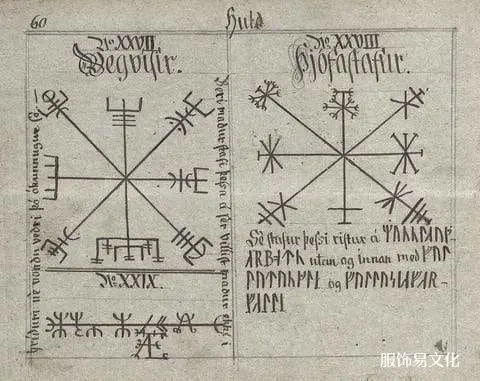 60
Huld
No XXVII
Vegvísir.
Beri madur stafi þessa á sér villist madur ekki í
hridum né vondu vedri þó ókunnugur sé.
No. XXIX.
No XXVIII
Þjófastafur.
Sé stafur þessi ristur á
utan og innan med
og
服饰易文化